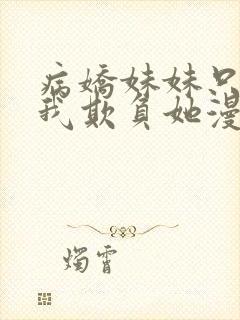 病嬌妹妹只
我欺負她漫
燭霄